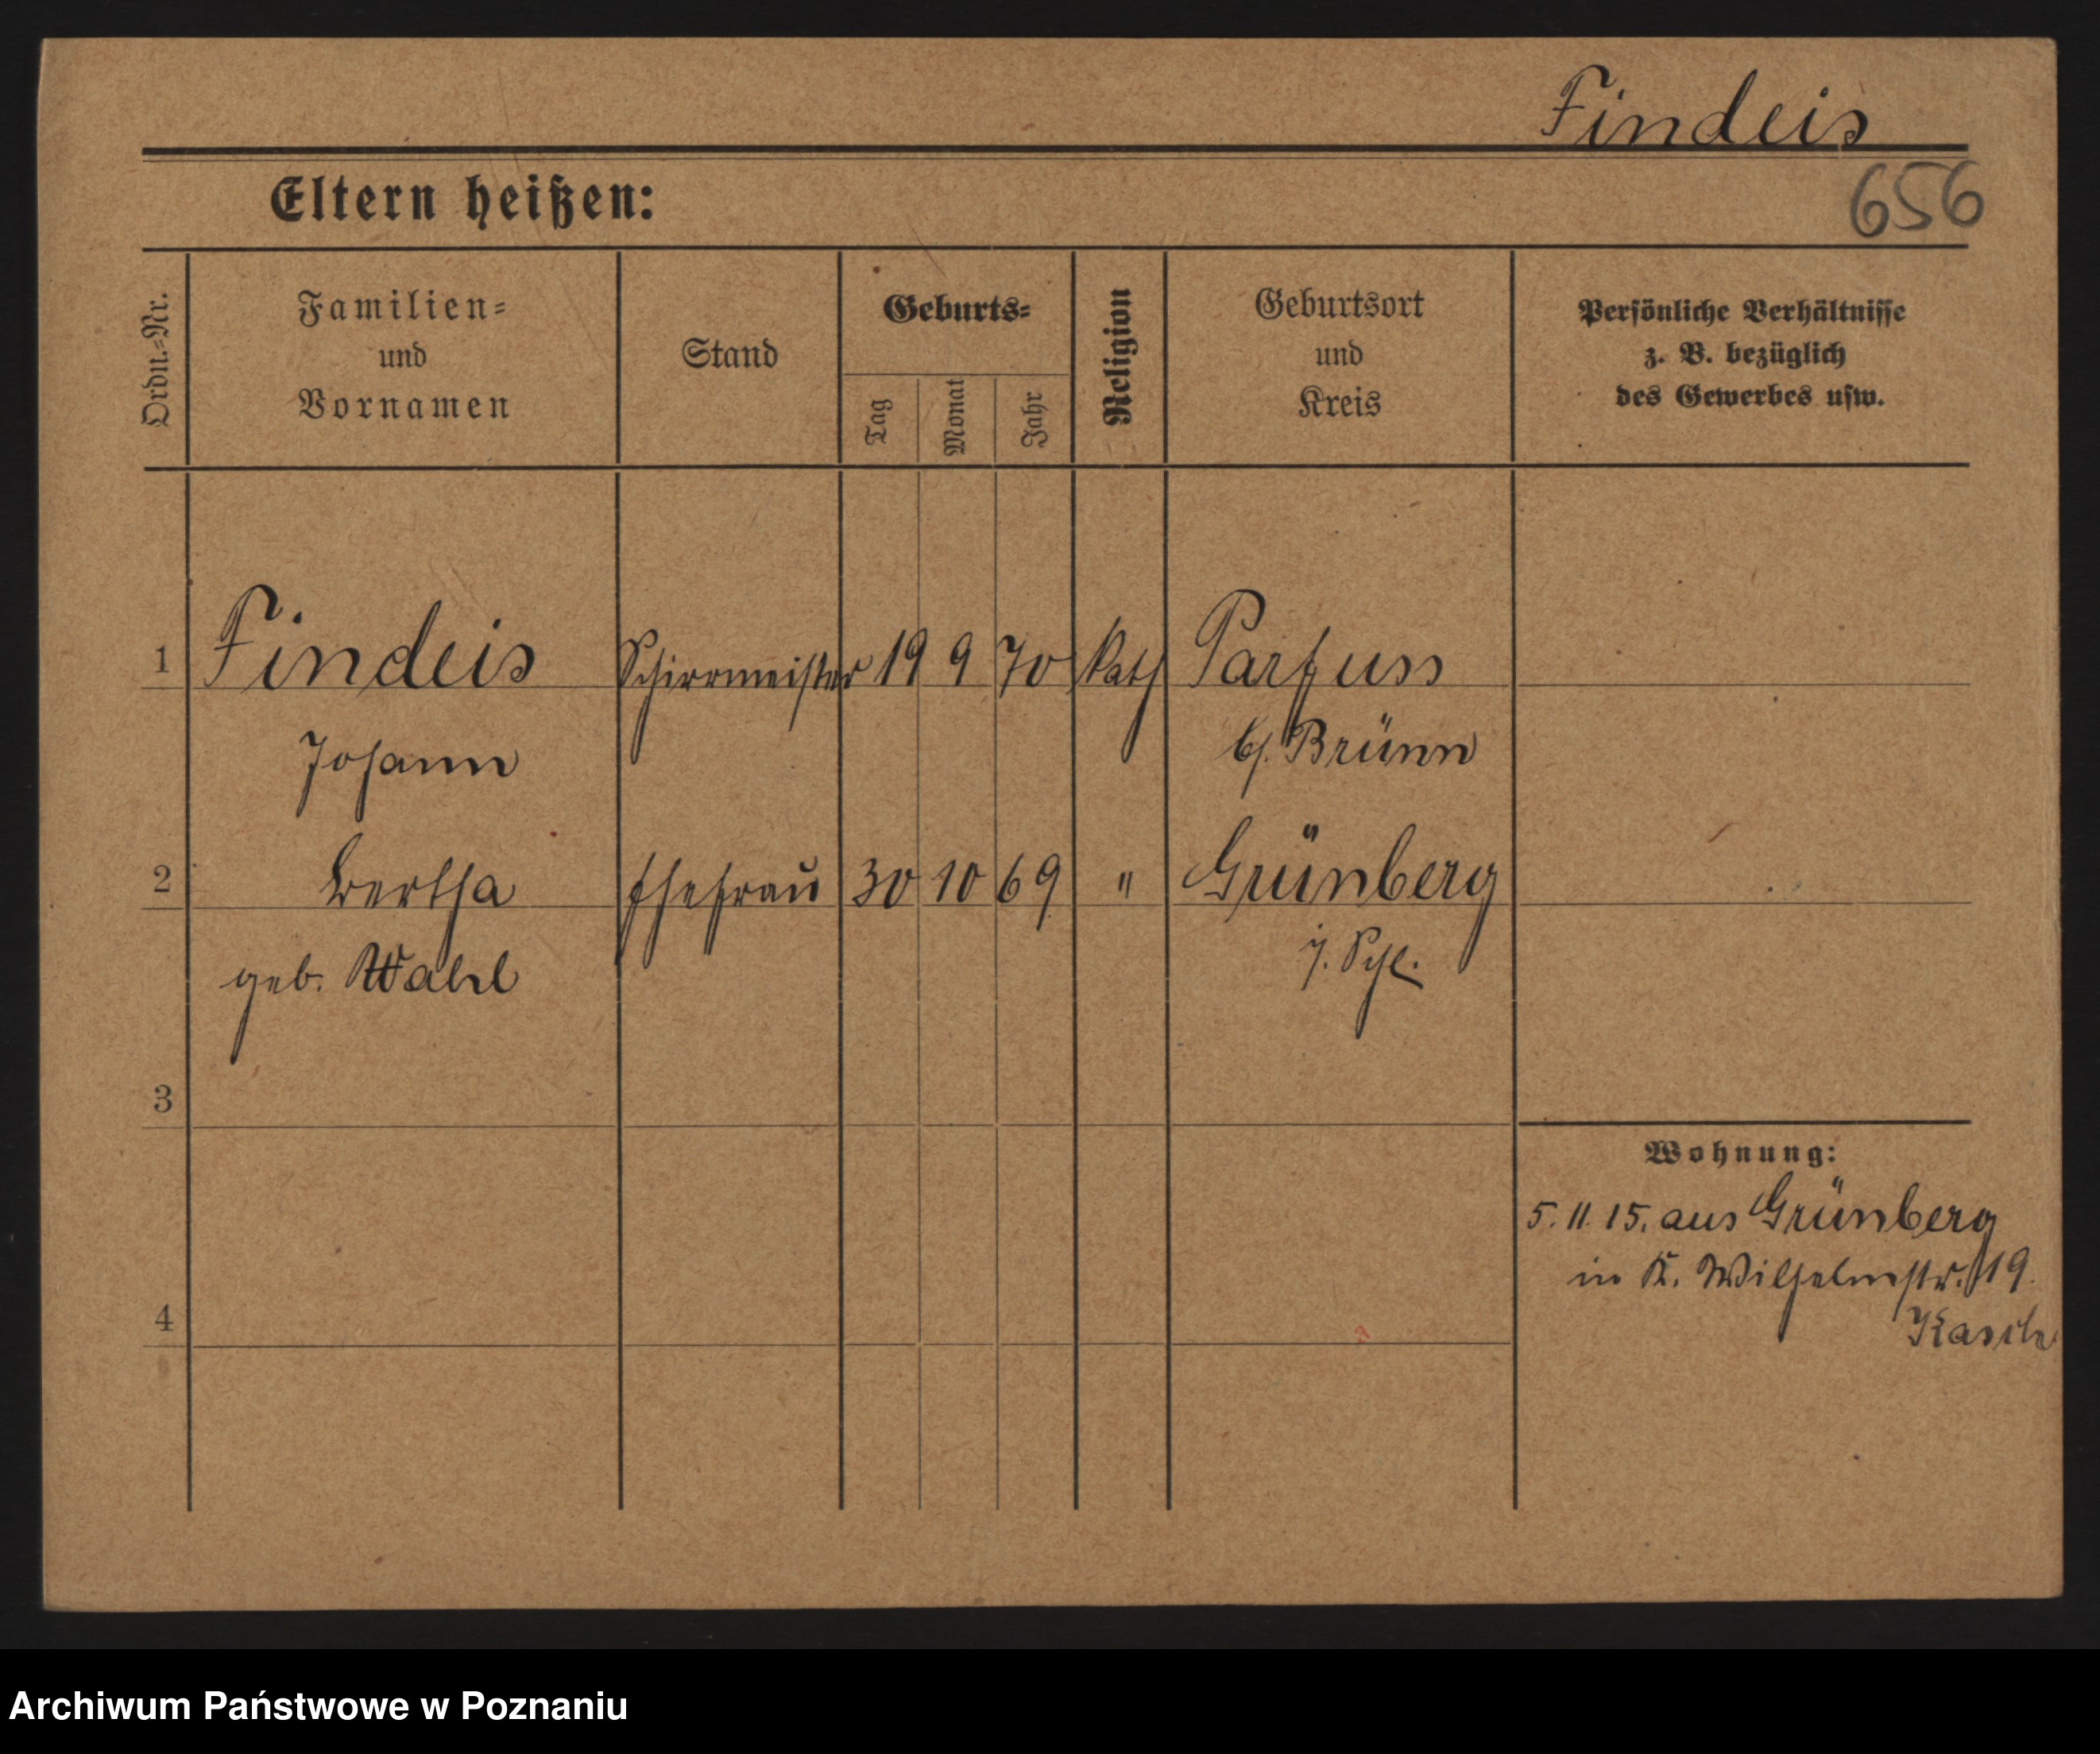 Findeis
656
Eltern heißen:
Ordn.-Nr.
Familien-
und
Vornamen
Stand
Geburts-
Tag
Monat
Jahr
Religion
Geburtsort
und
Kreis
Persönliche Verhältnisse
z. B. bezüglich
des Gewerbes usw.
1 Findeis Schirrmeister 19 9 70 kath Parfuss
Johann b/. Brünn
2 Bertha Ehefrau 30 10 69 " Grünberg
geb. Wahl i/. Schl.
3
Wohnung:
5. 11. 15. aus Grünberg
in K. Wilhelmstr. 19.
4
Archiwum Państwowe w Poznaniu